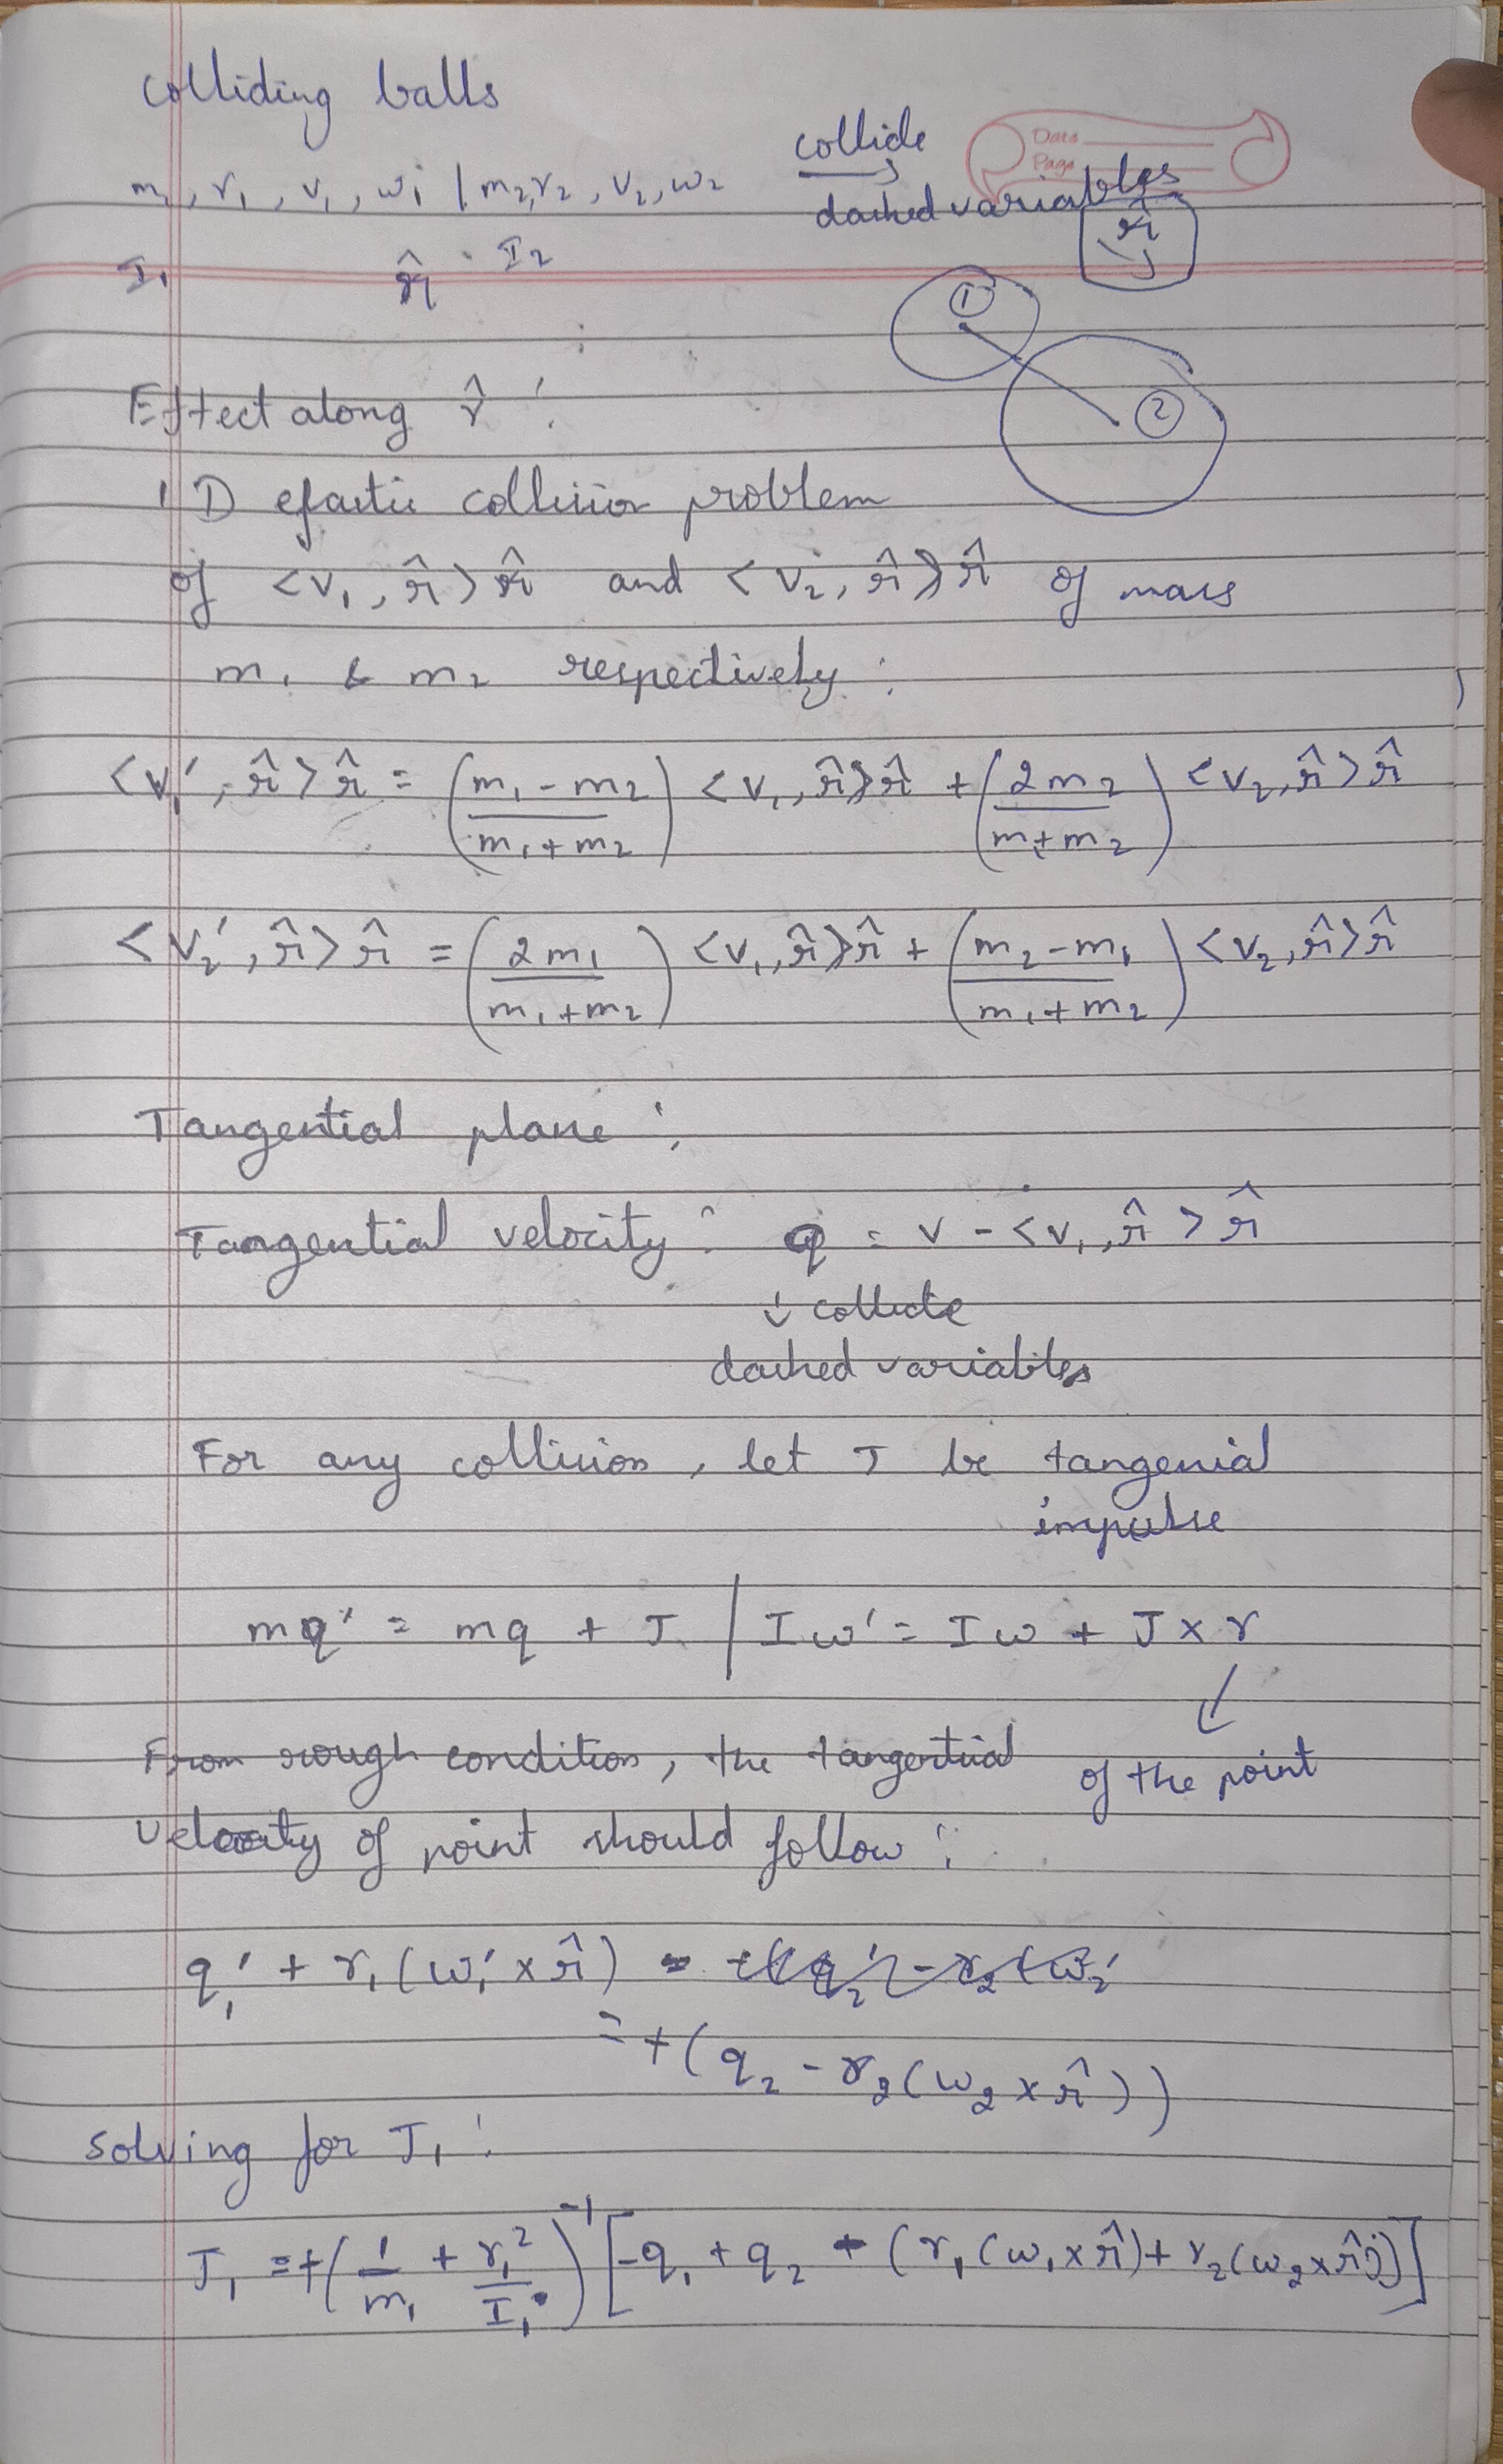 colliding balls
Date
Page
collide
→
m₁, r₁, v₁, ω₁ | m₂, r₂, v₂, ω₂
dashed variables
I₁ r̂ I₂
r̂
①
②
Effect along r̂ :
1D elastic collision problem
of <v₁, r̂> r̂ and <v₂, r̂> r̂ of mass
m₁ & m₂ respectively :
<v₁', r̂> r̂ = ((m₁ - m₂)/(m₁ + m₂)) <v₁, r̂> r̂ + (2m₂/(m₁ + m₂)) <v₂, r̂> r̂
<v₂', r̂> r̂ = (2m₁/(m₁ + m₂)) <v₁, r̂> r̂ + ((m₂ - m₁)/(m₁ + m₂)) <v₂, r̂> r̂
Tangential plane :
Tangential velocity : q = v - <v₁, r̂> r̂
↓ collide
dashed variables
For any collision, let J be tangenial
impulse
mq' = mq + J | Iω' = Iω + J × r
From rough condition, the tangential
of the point
velocity of point should follow :
q₁' + r₁(ω₁' × r̂)
= +(q₂ - r₂(ω₂ × r̂))
solving for J₁ :
J₁ = +(1/m₁ + r₁²/I₁)⁻¹ [-q₁ + q₂ - (r₁(ω₁ × r̂) + r₂(ω₂ × r̂))]